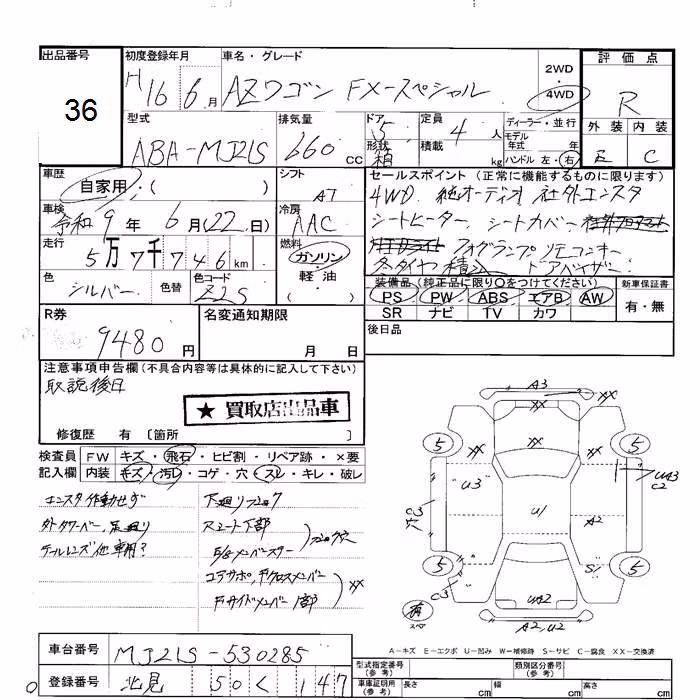 出品番号
36
初度登録年月
H16 6月
車名・グレード
AZワゴン FX-スペシャル
2WD
4WD
評価点
R
外装 内装
E C
型式
ABA-MJ21S
排気量
660 cc
ドア 5
形状 箱
定員 4 人
積載 kg
ディーラー・並行
モデル
年式 年
ハンドル 左・右
車歴
自家用・( )
シフト
AT
セールスポイント (正常に機能するものに限ります)
4WD 純オーディオ 社外エンスタ
シートヒーター、シートカバー
フォグランプ リモコンキー
冬タイヤ積込 ドアバイザー
車検
令和9年 6月(22日)
冷房
AAC
走行
5万7千746km
燃料
ガソリン
軽油
( )
色
シルバー
色替
色コード
Z2S
装備品 (純正品に限り○をつけてください)
PS PW ABS エアB AW
SR ナビ TV カワ
新車保証書
有・無
R券
9480円
名変通知期限
月 日
後日品
注意事項申告欄(不具合内容等は具体的に記入して下さい)
取説後日
★ 買取店出品車
修復歴 有 〔箇所 〕
検査員
記入欄
FW キズ・飛石・ヒビ割・リペア跡・×要
内装 キズ・汚レ・コゲ・穴・スレ・キレ・破レ
エンスタ作動せず
外タワーバー、足廻り
テールレンズ他車用?
下廻りフロア
ステート下部
F/Sメンバースター
コアサポ、Fクロスメンバー
Fサイドメンバー1部
XX
A3
XX
XX
XX
5
5
5
5
"U3"
U/
A2
UA3
C2
C3
穴
C3
S/
UA2
A2, U2
有
スペ
A-キズ E-エクボ U-凹み W-補修跡 S-サビ C-腐食 XX-交換済
車台番号
MJ21S-530285
登録番号
北見 50 く 147
型式指定番号
(参考)
類別区分番号
(参考)
車庫証明用
(参考)
長さ cm
幅 cm
高さ cm